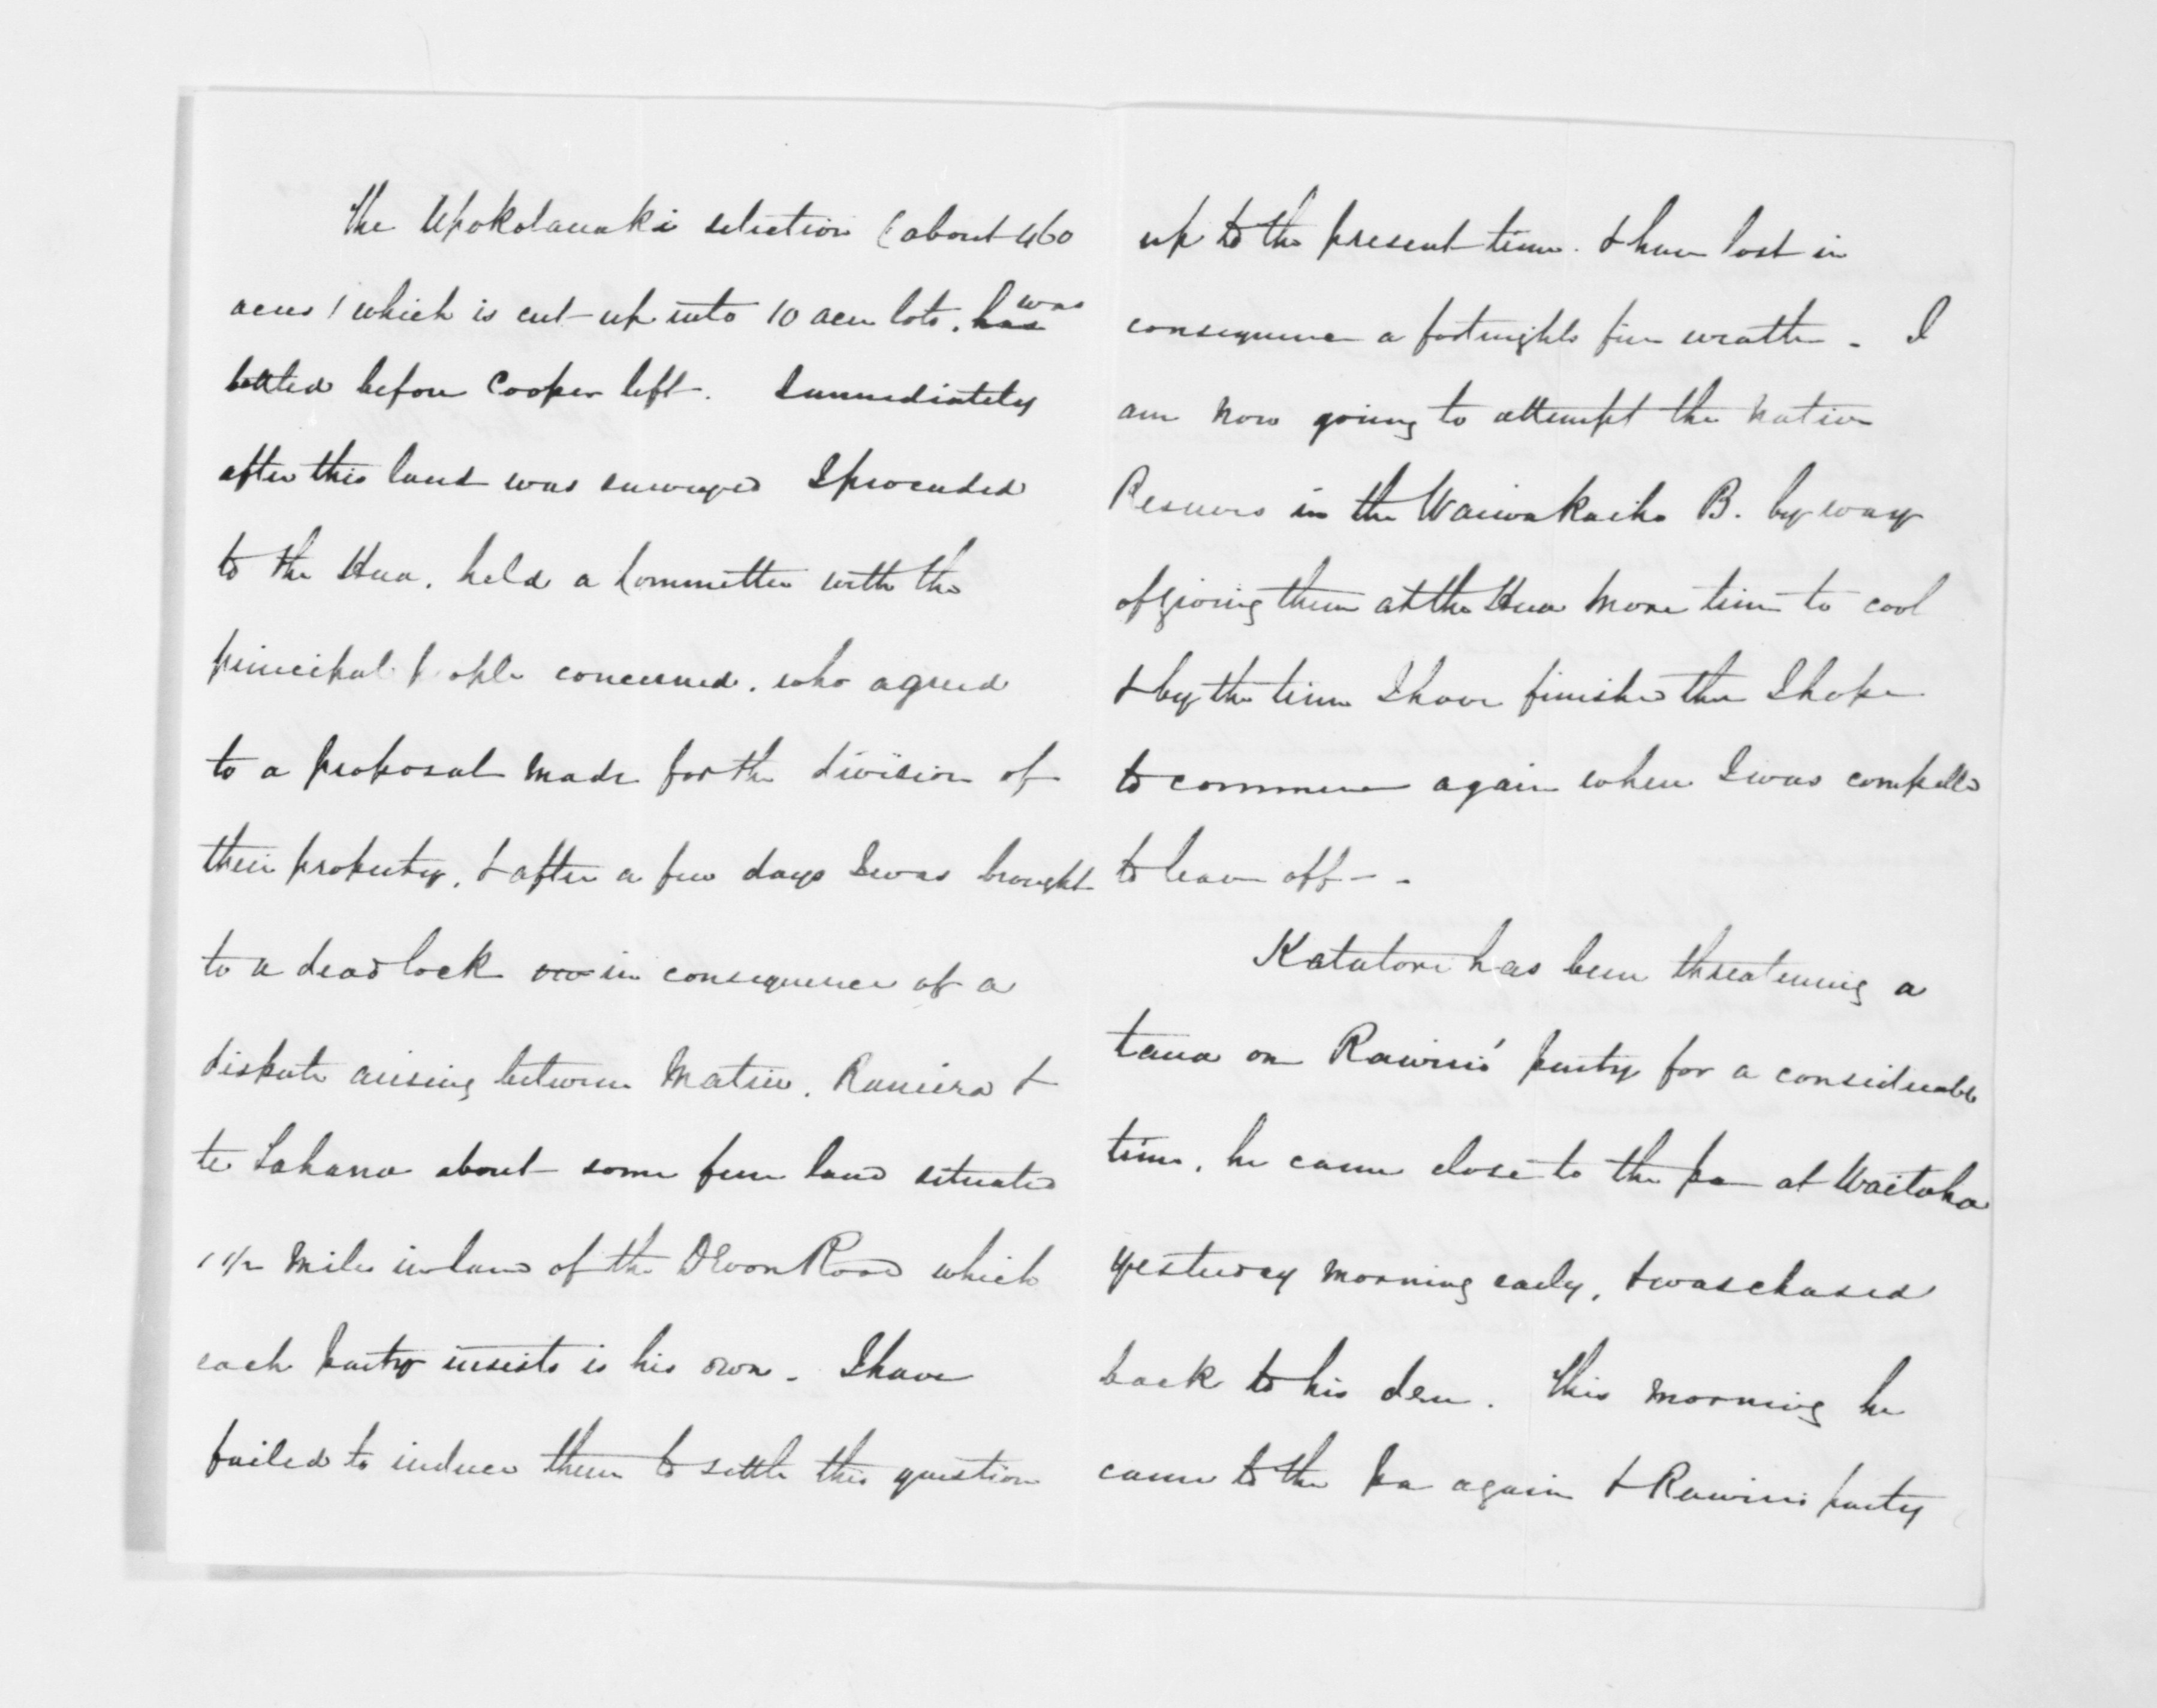 The Upokotauaki selection (about 460
acres) which is cut up into 10 acre lots, has was
ballotted before Cooper left. Immediately
after this land was surveyed I proceeded
to the Hua, held a Committee with the
principal people concerned, who agreed
to a proposal made for the division of
their property, & after a few days I was brought
to a dead lock in consequence of a
dispute arising between Matiu, Raniera &
te Tahana about some fern land situated
1 1/2 miles inland of the Devon Road which
each party insists is his own. I have
failed to induce them to settle this question
up to the present time. & have lost in
consequence a fortnights fine weather. I
am now going to attempt the Native
Reserves in the Waiwakaiho B. by way
of giving them at the Hua more time to cool
& by the time I have finished there I hope
to commence again where I was compelled
to leave off --
Katatore has been threatening a
taua on Rawiri's party for a considerable
time, he came close to the pa at Waitaha
yesterday morning early, & was chased
back to his den. This morning he
came to the pa again & Rawiri's party